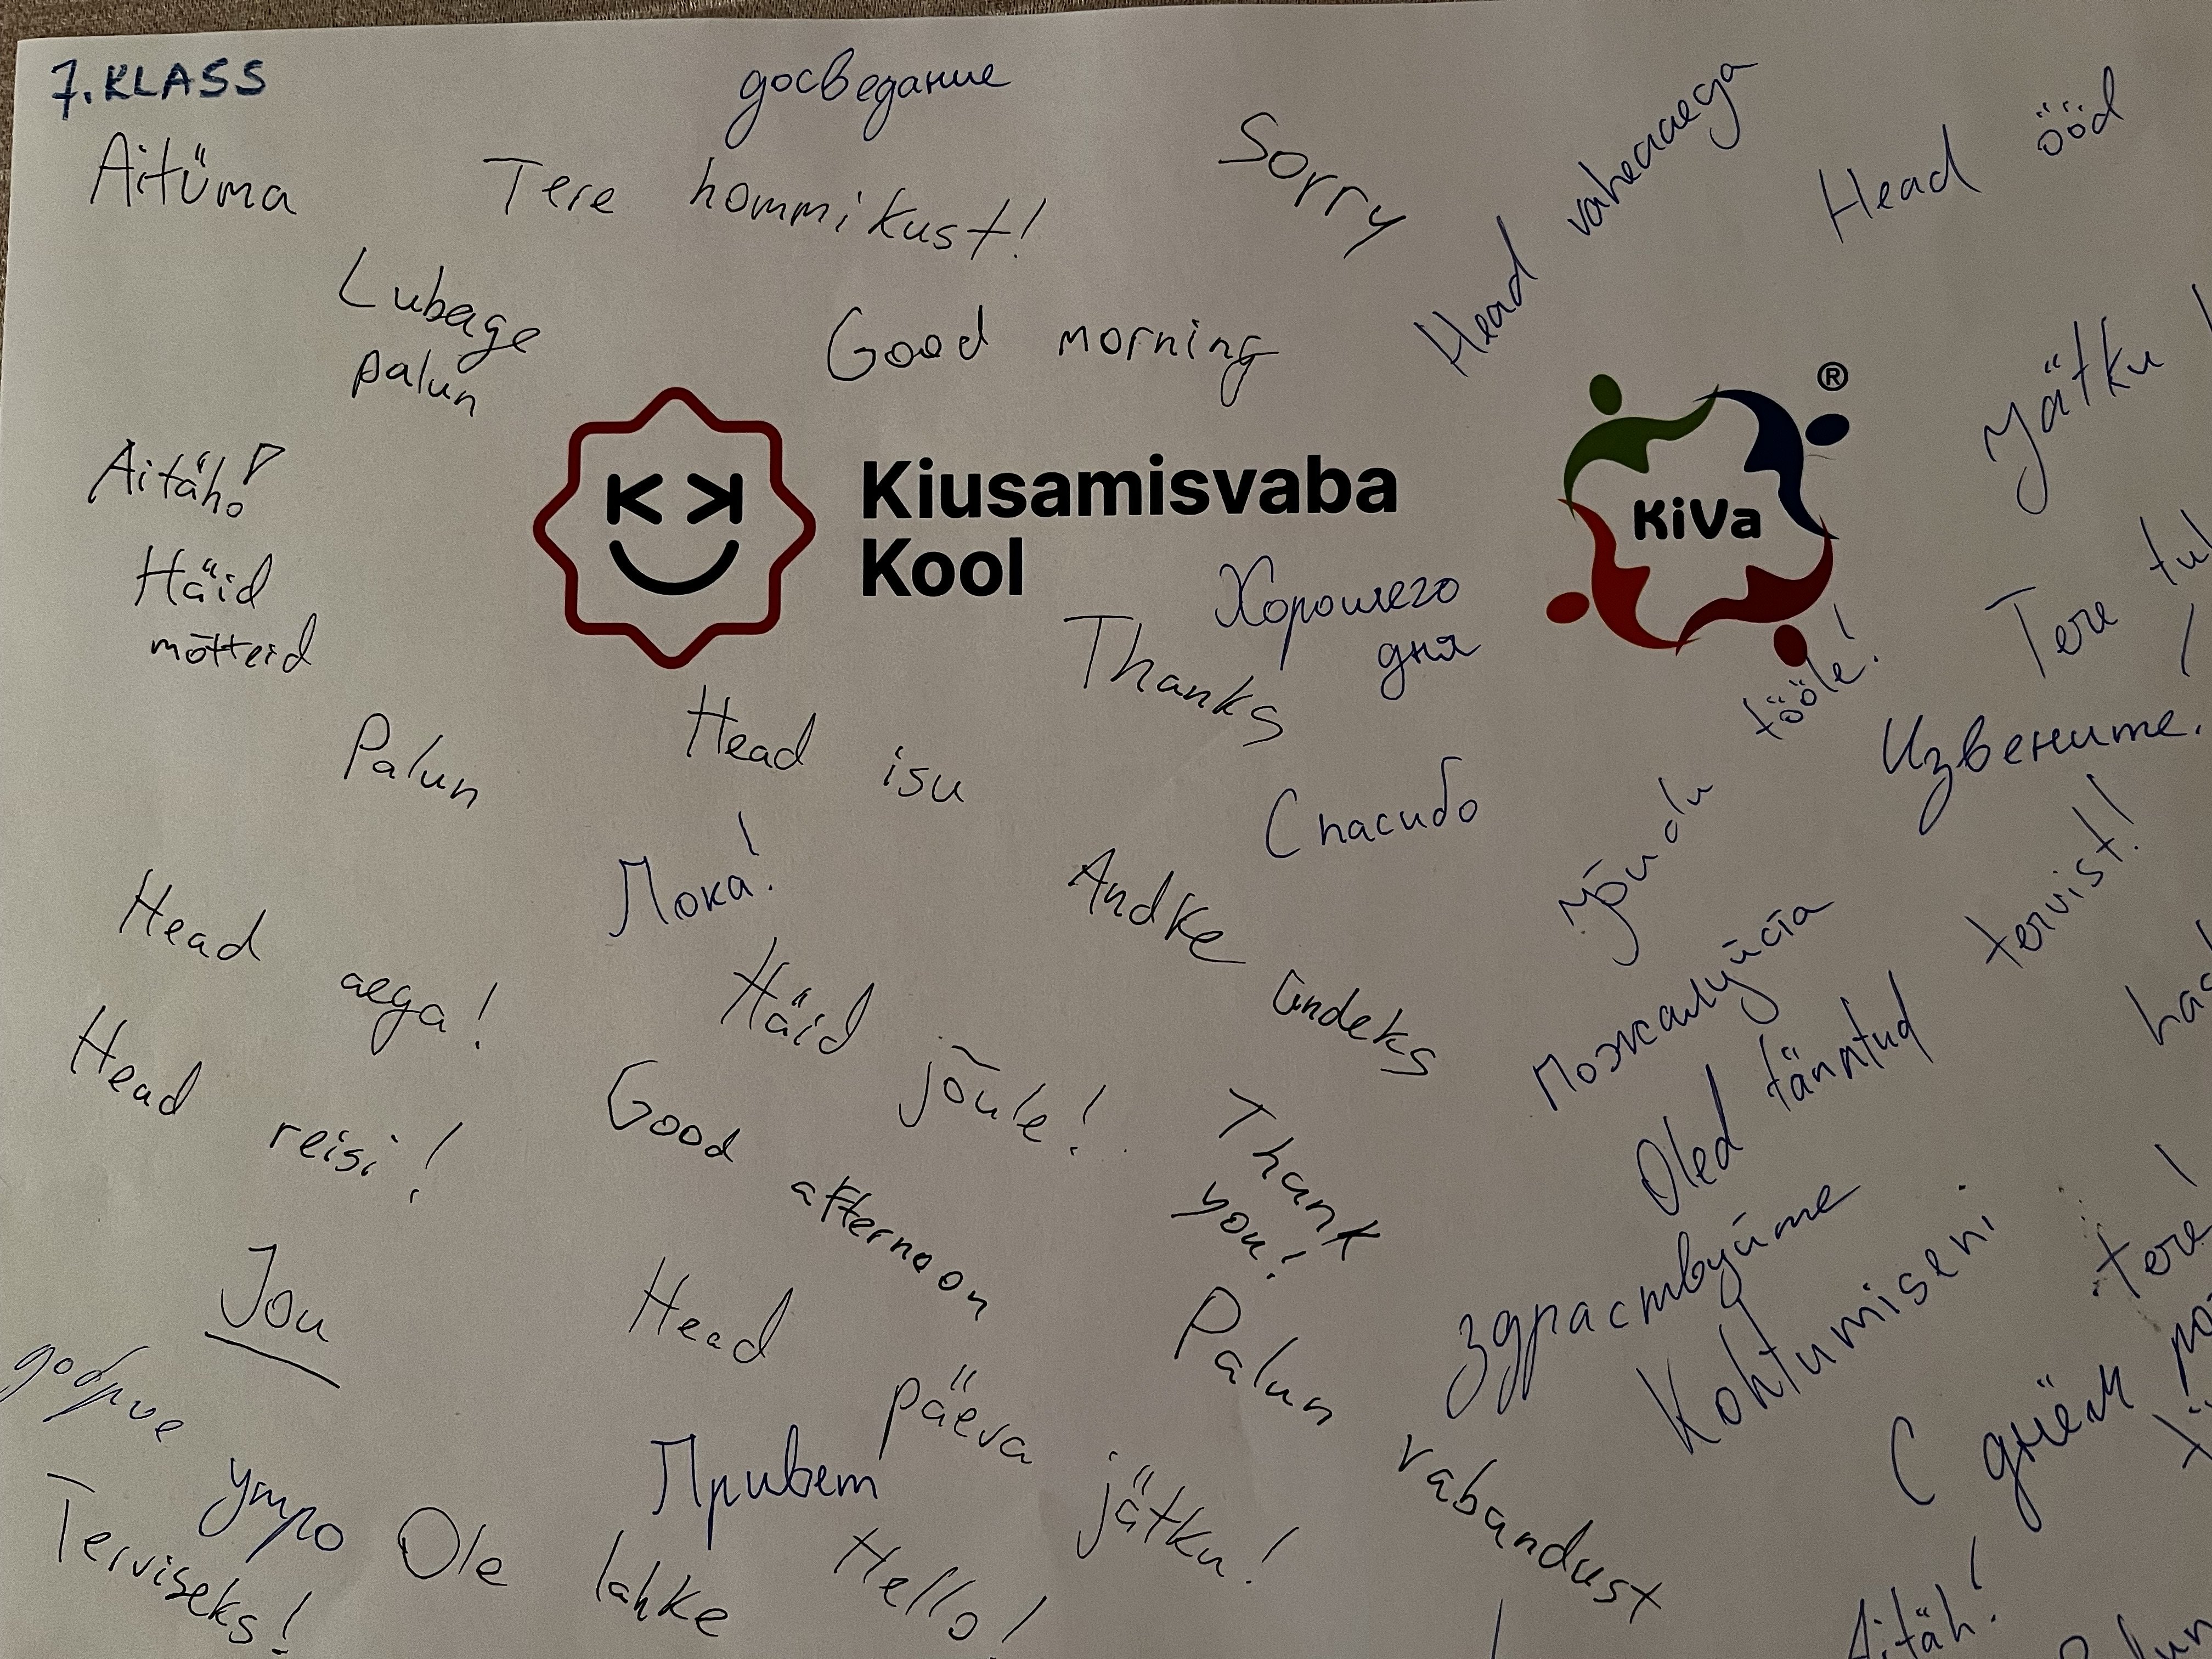 7. KLASS
досведание
Aitüma
Tere hommikust!
Sorry
Head vaheaega
Head ööd
Lubage
palun
Good morning
Jätku
Aitäh!
Kiusamisvaba
Kool
KiVa
®
Häid
mõtteid
Хорошего
дня
Thanks
Tere
Palun
Head isu
Jõudu tööle!
Извените.
Спасибо
Пока!
Andke andeks
Head aega!
Häid jõule!
Пожалуйста
Oled tänatud
tervist!
Head reisi!
Good afternoon
Thank
you!
Здраствуйте
Kohtumiseni
tere!
Jou
Head päeva jätku!
Palun vabandust
С днём
доброе
утро
Привет
Terviseks!
Ole lahke
Hello!
Aitäh!